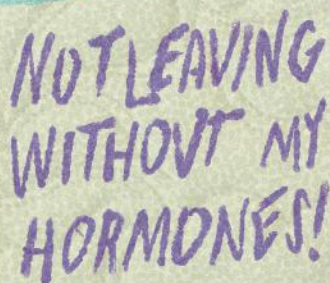 NOT LEAVING
WITHOUT MY
HORMONES!